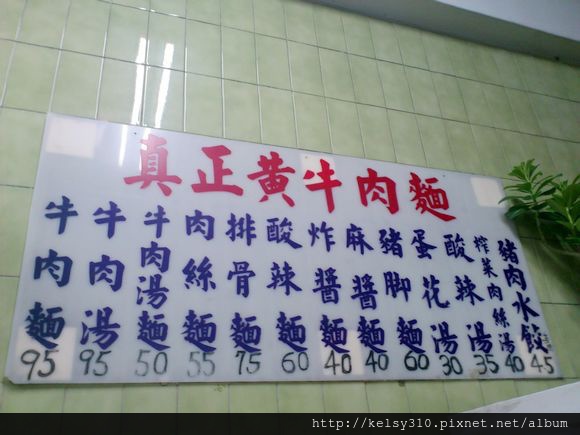 真正黃牛肉麵
牛肉麵 95
牛肉湯 95
牛肉湯麵 50
肉絲麵 55
排骨麵 75
酸辣麵 60
炸醬麵 40
麻醬麵 40
豬脚麵 60
蛋花湯 30
酸辣湯 35
榨菜肉絲湯 40
豬肉水餃 45
http://kelsy310.pixnet.net/album